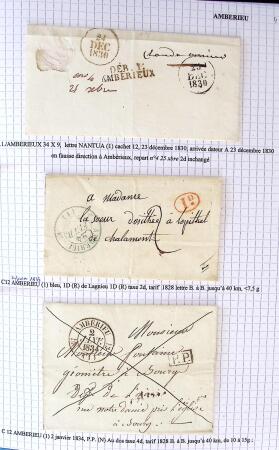 AMBERIEU
24
DEC
1830
DEB. 1
AMBÉRIEUX
25
DEC
1830
1/AMBERIEUX 34 X 9, lettre NANTUA (1) cachet 12, 23 décembre 1830, arrivée dateur A 23 décembre 1830
en fausse direction à Ambérieux, repart n°4 25 xbre 2d inchangé
a madame
la soeur dosithée a lopithal
de chalamont
1D
2
C12 AMBERIEU (1) bleu, 1D (R) de Lagnieu 1D (R) taxe 2d, tarif 1828 lettre B. à B. jusqu'à 40 km, <7,5 g
AMBERIEU
2
JANV
1834
Monsieur
Monsieur
géomètre à Bourg
P.P.
rue notre dame près l'église
à Bourg
C 12 AMBERIEU (1) 2 janvier 1834, P.P. (N) Au dos taxe 4d, tarif 1828 B. à B. jusqu'à 40 km, de 10 à 15g :